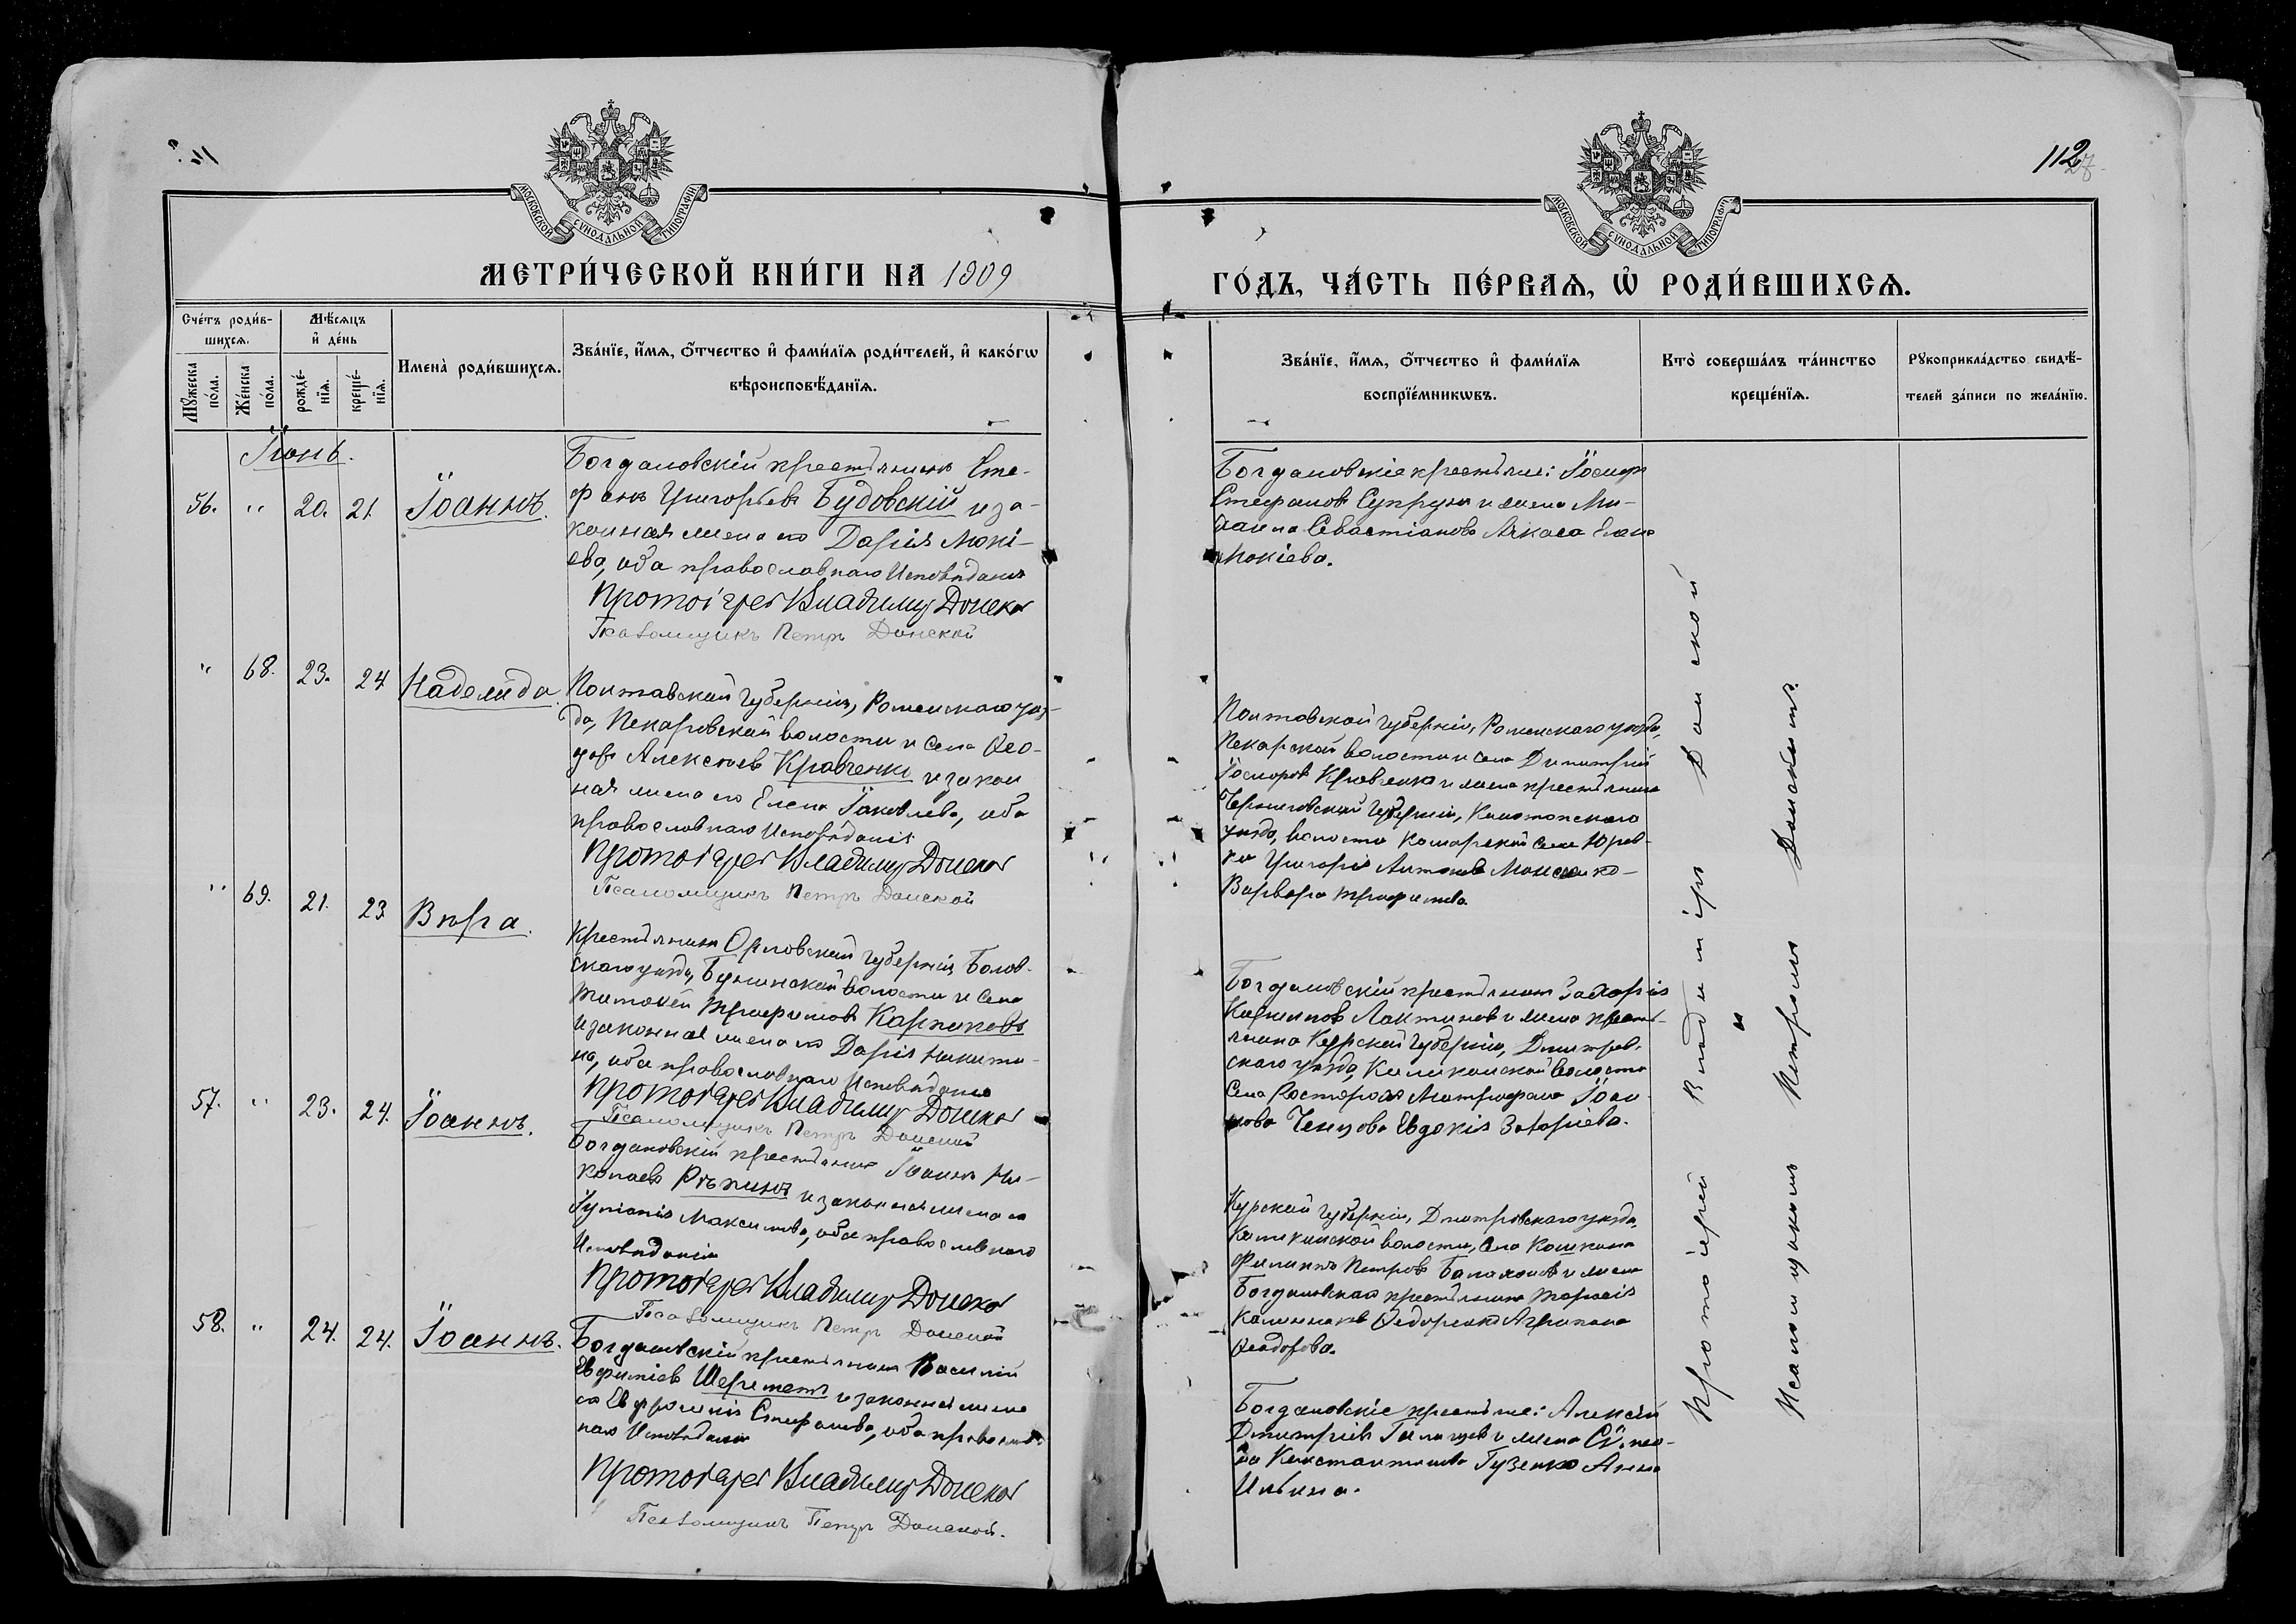 112
МОСКОВСКОЙ СѴНОДАЛЬНОЙ ТИПОГРАФИИ
МОСКОВСКОЙ СѴНОДАЛЬНОЙ ТИПОГРАФИИ
МЕТРИ́ЧЕСКОЙ КНИ́ГИ НА 1909
ГО́ДЪ, ЧА́СТЬ ПЕ́РВАЯ, Ѽ РОДИ́ВШИХСЯ.
Сче́тъ роди́в-
шихся.
Мѣ́сяцъ
и҆ де́нь
Му́жеска
по́ла.
Же́нска
по́ла.
рожде́-
нїя.
креще́-
нїя.
Имена̀ роди́вшихся.
Зва́нїе, и҆́мя, ѻ҆́тчество и҆ фами́лїя роди́телей, и҆ како́гѡ
вѣроисповѣ́данїя.
Зва́нїе, и҆́мя, ѻ҆́тчество и҆ фами́лїя
воспрїе́мникѡвъ.
Кто̀ соверша́лъ та́инство
креще́нїя.
Рꙋкоприкла́дство свидѣ́-
телей за́писи по жела́нїю.
Іюнь.
56. " 20. 21. Іоаннъ.
Богдановскій крестьянинъ Сте-
фанъ Григорьевъ Будовскій и за-
конная жена его Дарія Мокі-
ева, оба православнаго исповѣданія
Протоіерей Владимір Донской
Псаломщикъ Петръ Донской
Богдановскіе крестьяне: Іосиф
Стефанов Супрунъ и жена Ми-
хаила Севастіанова Елена
Мокіева.
" 68. 23. 24 Надежда.
Полтавской губерніи, Роменскаго уѣз-
да, Пекаровской волости и села Ѳео-
доръ Алексѣевъ Кравченко и закон
ная жена его Елена Іаковлева, оба
православнаго исповѣданія
Протоіерей Владимір Донской
Псаломщикъ Петръ Донской
Полтавской губерніи, Роменскаго уѣзда,
Пекарской волости и села Димитрій
Кравченко и жена крестьянина
Черниговской губерніи, Конотопскаго
уѣзда, волости села Юров-
ки Григорія Антонова
Варвара Трофимова
" 69. 21. 23 Вѣра.
Крестьянинъ Орловской губерніи, Болхов-
скаго уѣзда, волости и села
Трофимовъ Карпиковъ
и законная жена его Дарія Никити-
на, оба православнаго исповѣданія
Протоіерей Владимір Донской
Псаломщикъ Петръ Донской
Богдановскій крестьянинъ Захарія
и жена кресть-
янина Курской губерніи, Дмитров-
скаго уѣзда, волости
села Митрофана Іоан-
нова Ченцова Евдокія Захаріева.
57. " 23. 24. Іоаннъ.
Богдановскій крестьянинъ Іоаннъ Ни-
колаевъ Рѣпинъ и законная жена его
Іуліанія Максимова, оба православнаго
исповѣданія
Протоіерей Владимір Донской
Псаломщикъ Петръ Донской
Курской губерніи, Дмитровскаго уѣзда,
волости, села
Филиппъ Петровъ и жена
Богдановскаго крестьянина
Агрипина
Ѳеодорова.
58. " 24. 24. Іоаннъ.
Богдановскій крестьянинъ Василій
Евфиміевъ Шереметъ и законная жена
его Евфросинія Стефанова, оба православ-
наго исповѣданія
Протоіерей Владимір Донской
Псаломщикъ Петръ Донской.
Богдановскіе крестьяне: Алексѣй
Дмитріевъ и жена Сѵмео-
на Константинова Гузенко Анна
Ильина.
Протоіерей Владиміръ Донской
и
Псаломщикъ Петръ